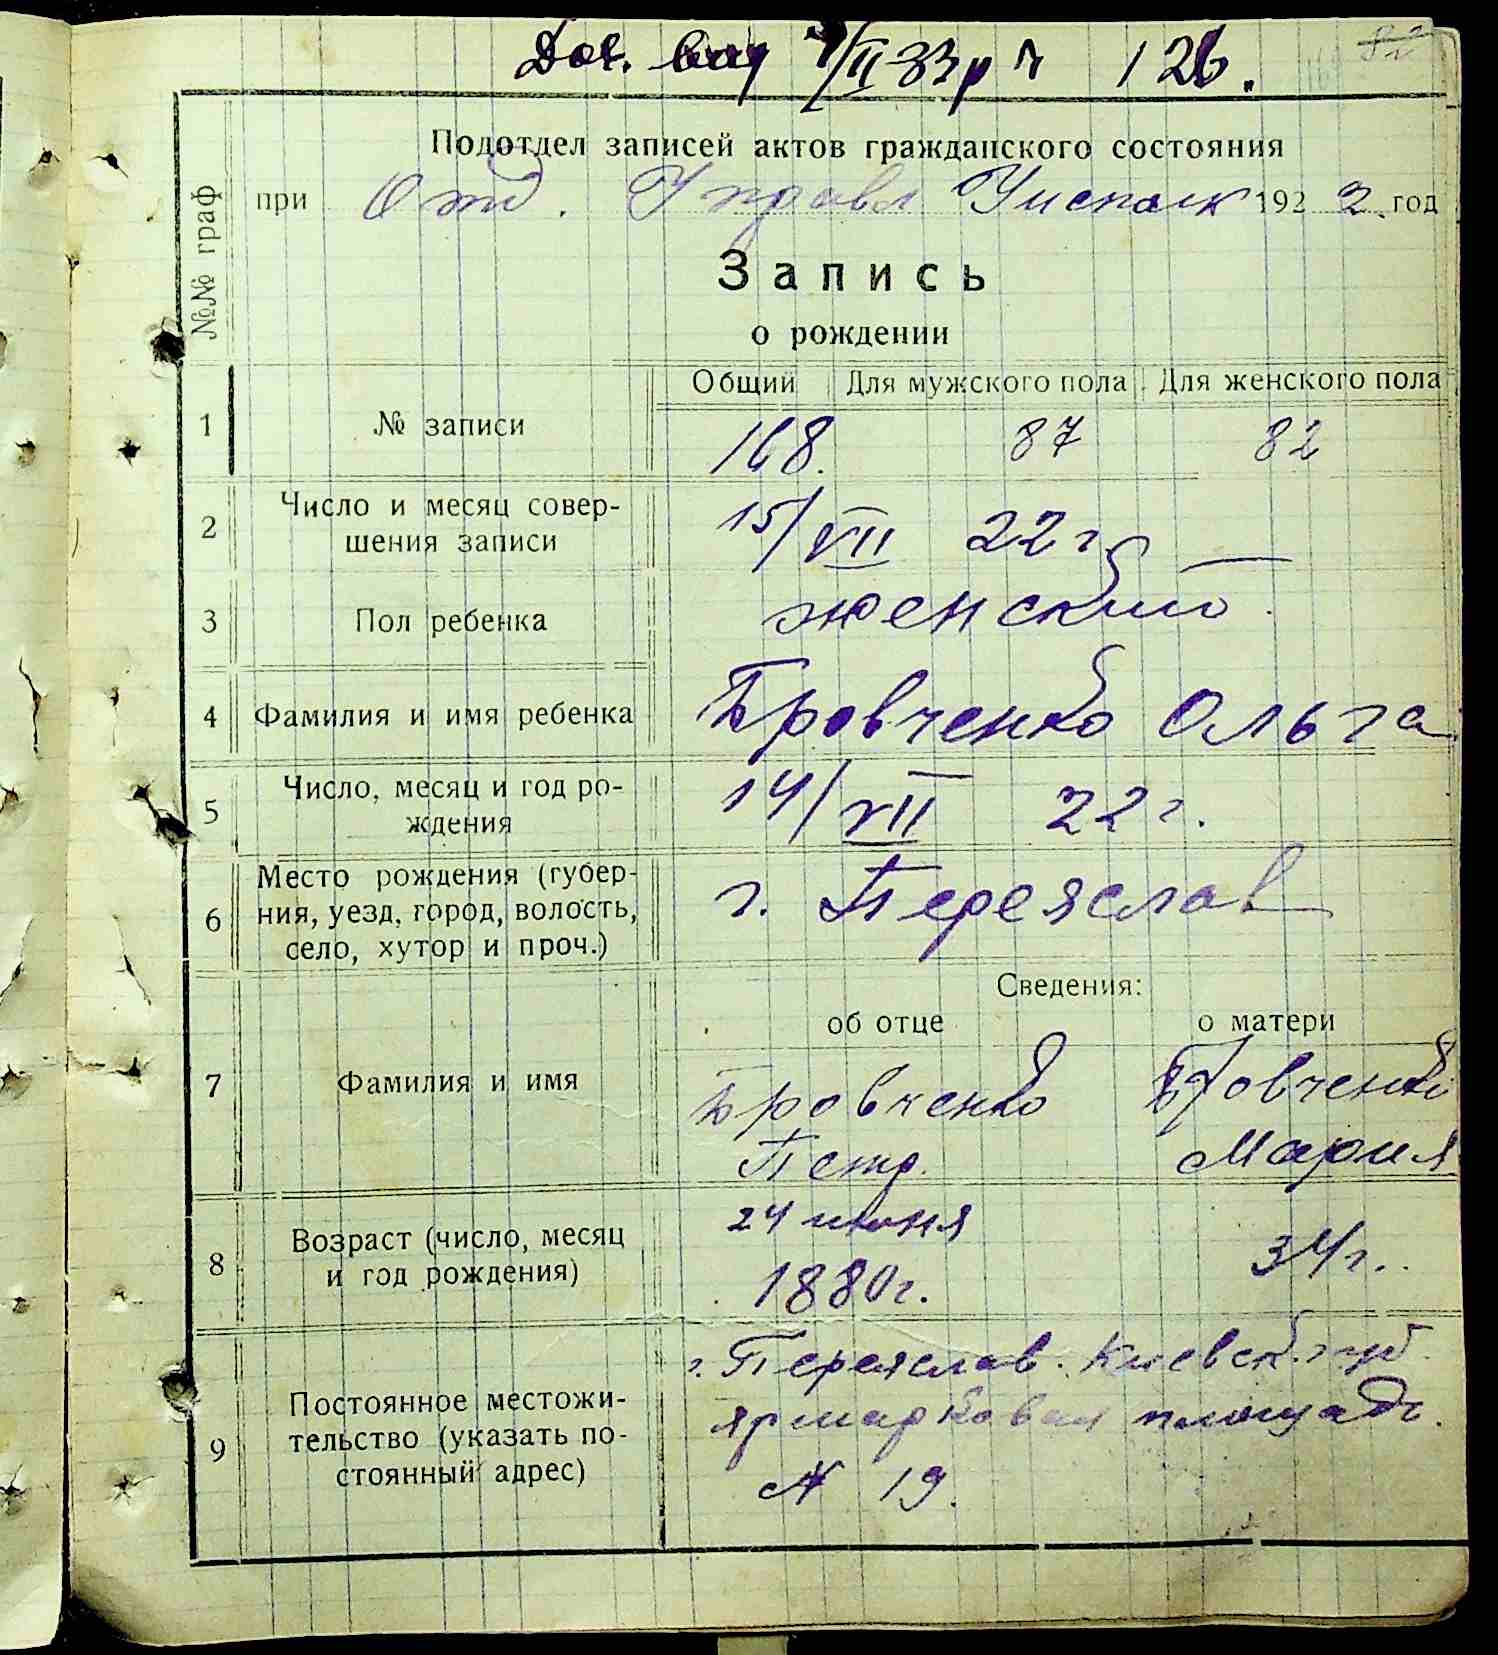 Дов. вид 7/II 33р № 126.
Подотдел записей актов гражданского состояния
№№ граф
при Отд. Управл Уисполк 1922 год
Запись
о рождении
Общий Для мужского пола Для женского пола
1 № записи 168. 87 82
2 Число и месяц совер-
шения записи 15/VII 22 г
3 Пол ребенка женский.
4 Фамилия и имя ребенка Бровченко Ольга
5 Число, месяц и год ро-
ждения 14/VII 22 г.
6 Место рождения (губер-
ния, уезд, город, волость,
село, хутор и проч.) г. Переяслав
Сведения:
об отце о матери
7 Фамилия и имя Бровченко Бровченко
Петр. Мария
8 Возраст (число, месяц
и год рождения) 24 июня
1880 г. 34 г.
9 Постоянное местожи-
тельство (указать по-
стоянный адрес) г. Переяслав. Киевск. губ.
ярмарковая площадь.
№ 19.